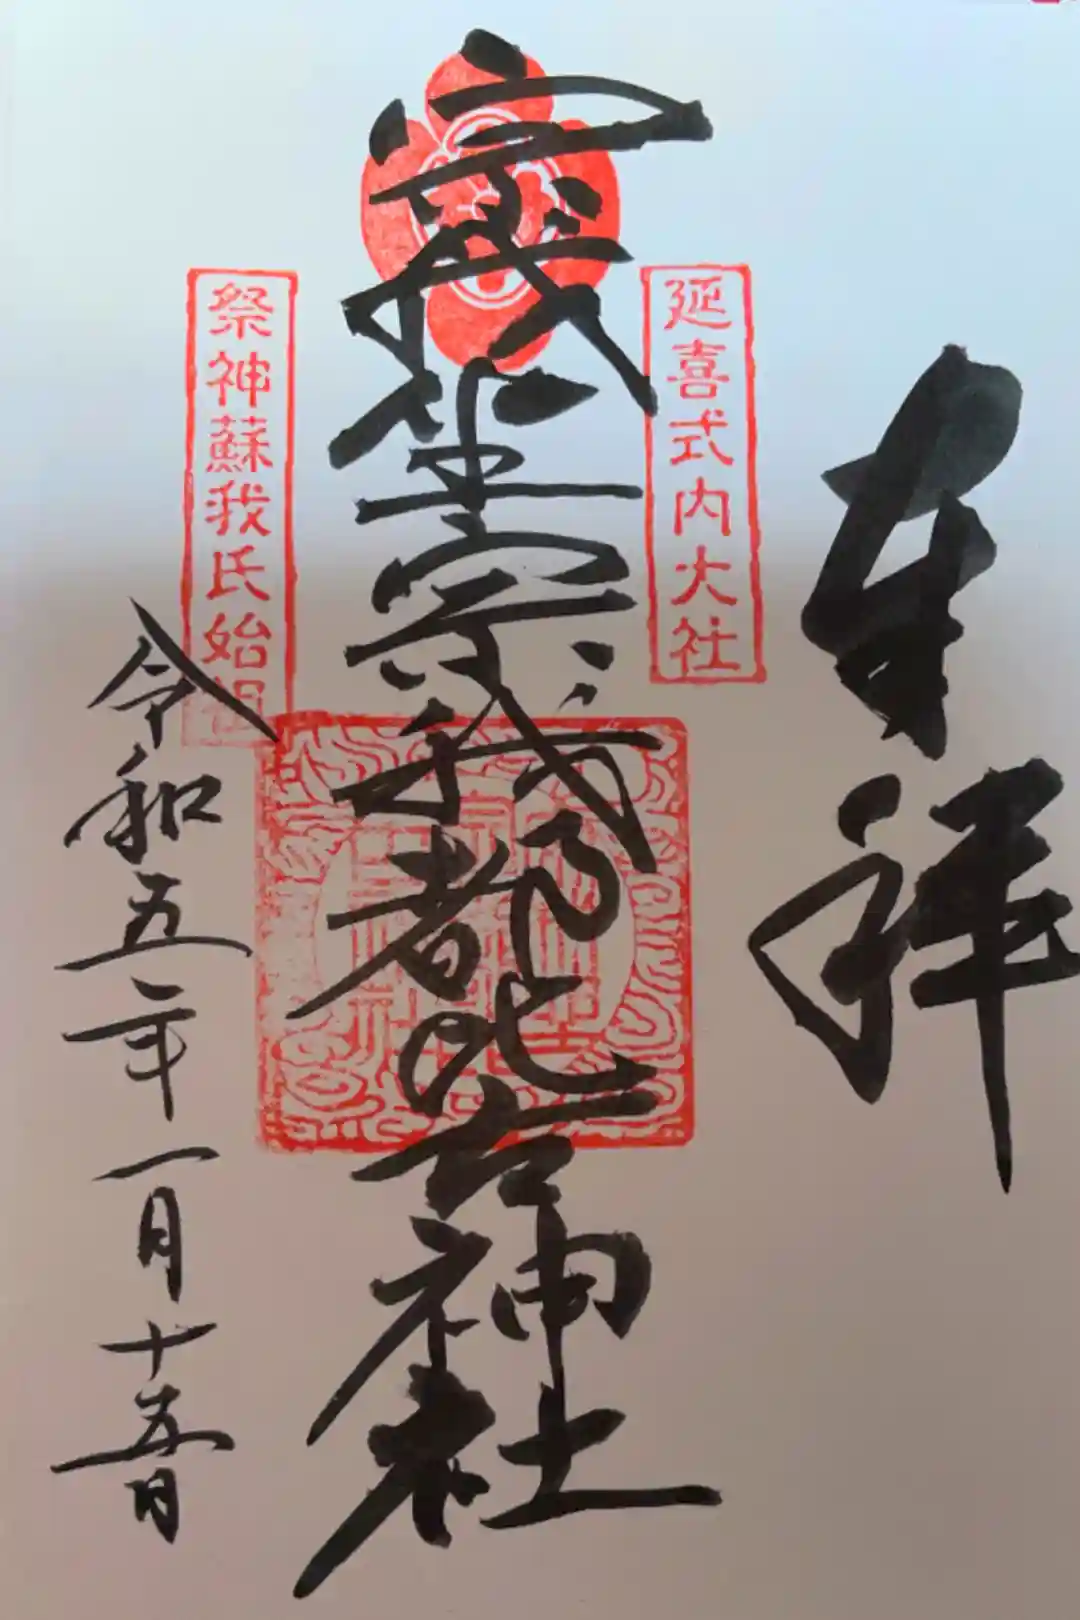 奉拝
延喜式内大社
宗我坐宗我都比古神社
祭神蘇我氏始祖
令和五年一月十五日